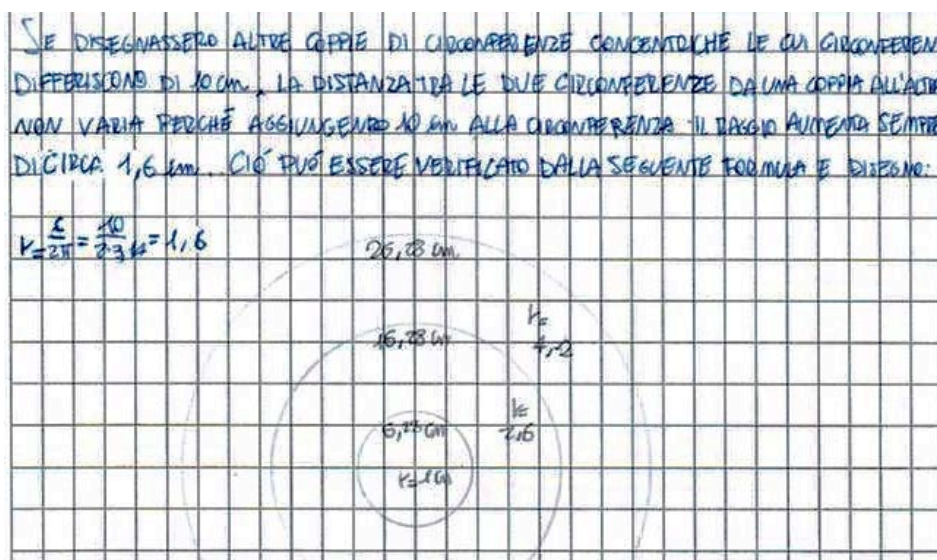 SE DISEGNASSERO ALTRE COPPIE DI CIRCONFERENZE CONCENTRICHE LE CUI CIRCONFEREN
DIFFERISCONO DI 10 cm, LA DISTANZA TRA LE DUE CIRCONFERENZE DA UNA COPPIA ALL'ALTR
NON VARIA PERCHÉ AGGIUNGENDO 10 cm ALLA CIRCONFERENZA IL RAGGIO AUMENTA SEMPRE
DI CIRCA 1,6 cm. CIÒ PUÒ ESSERE VERIFICATO DALLA SEGUENTE FORMULA E DISEGNO:
r=c/2π=10/2·3,14=1,6
26,28 cm
r=
4,2
16,28 cm
r=
2,6
6,28 cm
r=1cm